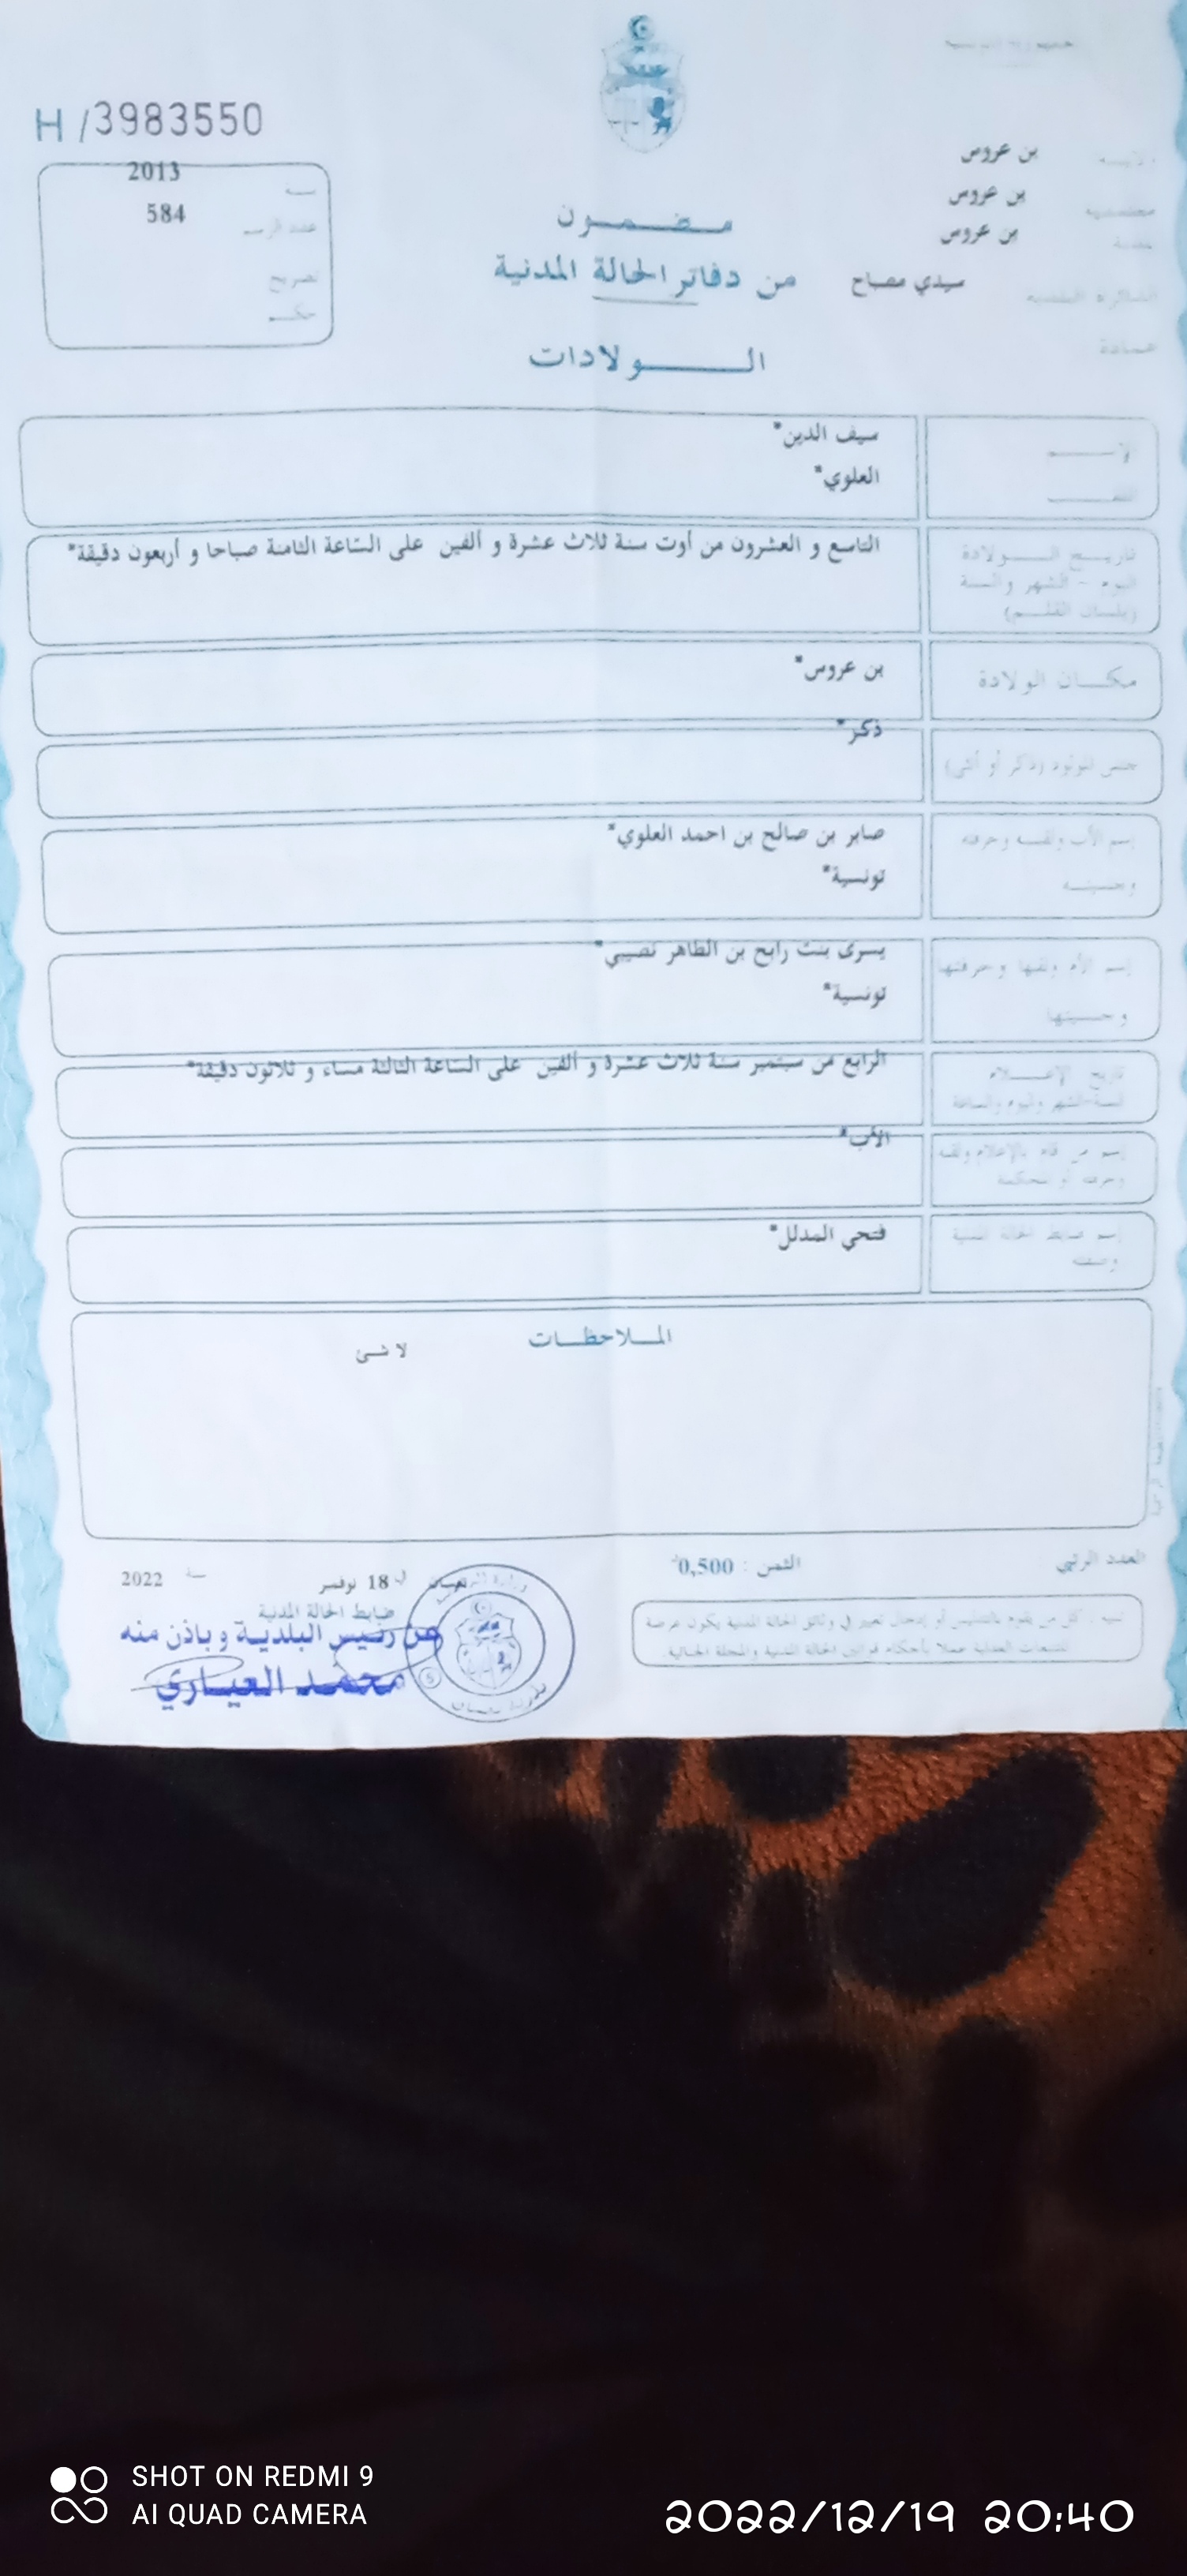 الجمهورية التونسية
H / 3983550
ولايــة بن عروس
معتمدية بن عروس
بلدية بن عروس
الدائرة البلدية سيدي مصباح
عمـادة
سنـة 2013
عدد الرسم 584
تصريح
حكـــم
مـضـمـــون
من دفاتر الحالة المدنية
الـــــــولادات
الإســـــم سيف الدين*
اللقـــب العلوي*
تاريــخ الـــــولادة
اليوم - الشهر والسنة
(بلسان القلـــم)
التاسع و العشرون من أوت سنة ثلاث عشرة و ألفين على الساعة الثامنة صباحا و أربعون دقيقة*
مكـــان الولادة بن عروس*
جنس المولود (ذكر أو أنثى) ذكر*
إسم الأب ولقبـه وحرفته صابر بن صالح بن احمد العلوي*
وجنسيتــه تونسية*
إسم الأم ولقبها وحرفتها يسرى بنت رابح بن الطاهر نصيبي*
وجنسيتها تونسية*
تاريخ الإعـــلام
السنة-الشهر واليوم والساعة
الرابع من سبتمبر سنة ثلاث عشرة و ألفين على الساعة الثالثة مساء و ثلاثون دقيقة*
إسم من قام بالإعلام ولقبه
وحرفته أو المحكمة
الأب*
إسم ضابط الحالة المدنية
وصفته
فتحي المدلل*
المــلاحظــات
لا شئ
العدد الرتبي
الثمن : 0,500د
تنبيه : كل من يقوم بالتدليس أو إدخال تغيير في وثائق الحالة المدنية يكون عرضة
للتتبعات العدلية عملا بأحكام قوانين الحالة المدنية والمجلة الجنائية.
نعسان في 18 نوفمبر سنة 2022
ضابط الحالة المدنية
عن رئيس البلدية وبإذن منه
محمد العياري
بلدية نعسان
SHOT ON REDMI 9
AI QUAD CAMERA
2022/12/19 20:40